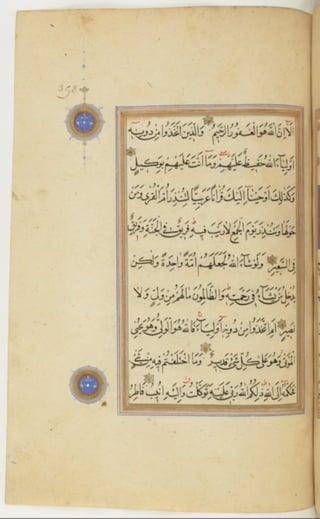 اَلَا اِنَّ اللهَ هُوَ الْغَفُورُ الرَّحِيمُ وَالَّذِينَ اتَّخَذُوا مِنْ دُونِهِ
اَوْلِيَاءَ اللهُ حَفِيظٌ عَلَيْهِمْ وَمَا اَنْتَ عَلَيْهِمْ بِوَكِيلٍ
وَكَذَلِكَ اَوْحَيْنَا اِلَيْكَ قُرْاٰنًا عَرَبِيًّا لِتُنْذِرَ اُمَّ الْقُرَى وَمَنْ
حَوْلَهَا وَتُنْذِرَ يَوْمَ الْجَمْعِ لَا رَيْبَ فِيهِ فَرِيقٌ فِي الْجَنَّةِ وَفَرِيقٌ
فِي السَّعِيرِ وَلَوْ شَاءَ اللهُ لَجَعَلَهُمْ اُمَّةً وَاحِدَةً وَلَكِنْ
يُدْخِلُ مَنْ يَشَاءُ فِي رَحْمَتِهِ وَالظَّالِمُونَ مَا لَهُمْ مِنْ وَلِيٍّ وَلَا
نَصِيرٍ اَمِ اتَّخَذُوا مِنْ دُونِهِ اَوْلِيَاءَ فَاللهُ هُوَ الْوَلِيُّ وَهُوَ يُحْيِي
الْمَوْتَى وَهُوَ عَلَى كُلِّ شَيْءٍ قَدِيرٌ وَمَا اخْتَلَفْتُمْ فِيهِ مِنْ شَيْءٍ
فَحُكْمُهُ اِلَى اللهِ ذَلِكُمُ اللهُ رَبِّي عَلَيْهِ تَوَكَّلْتُ وَاِلَيْهِ اُنِيبُ فَاطِرُ